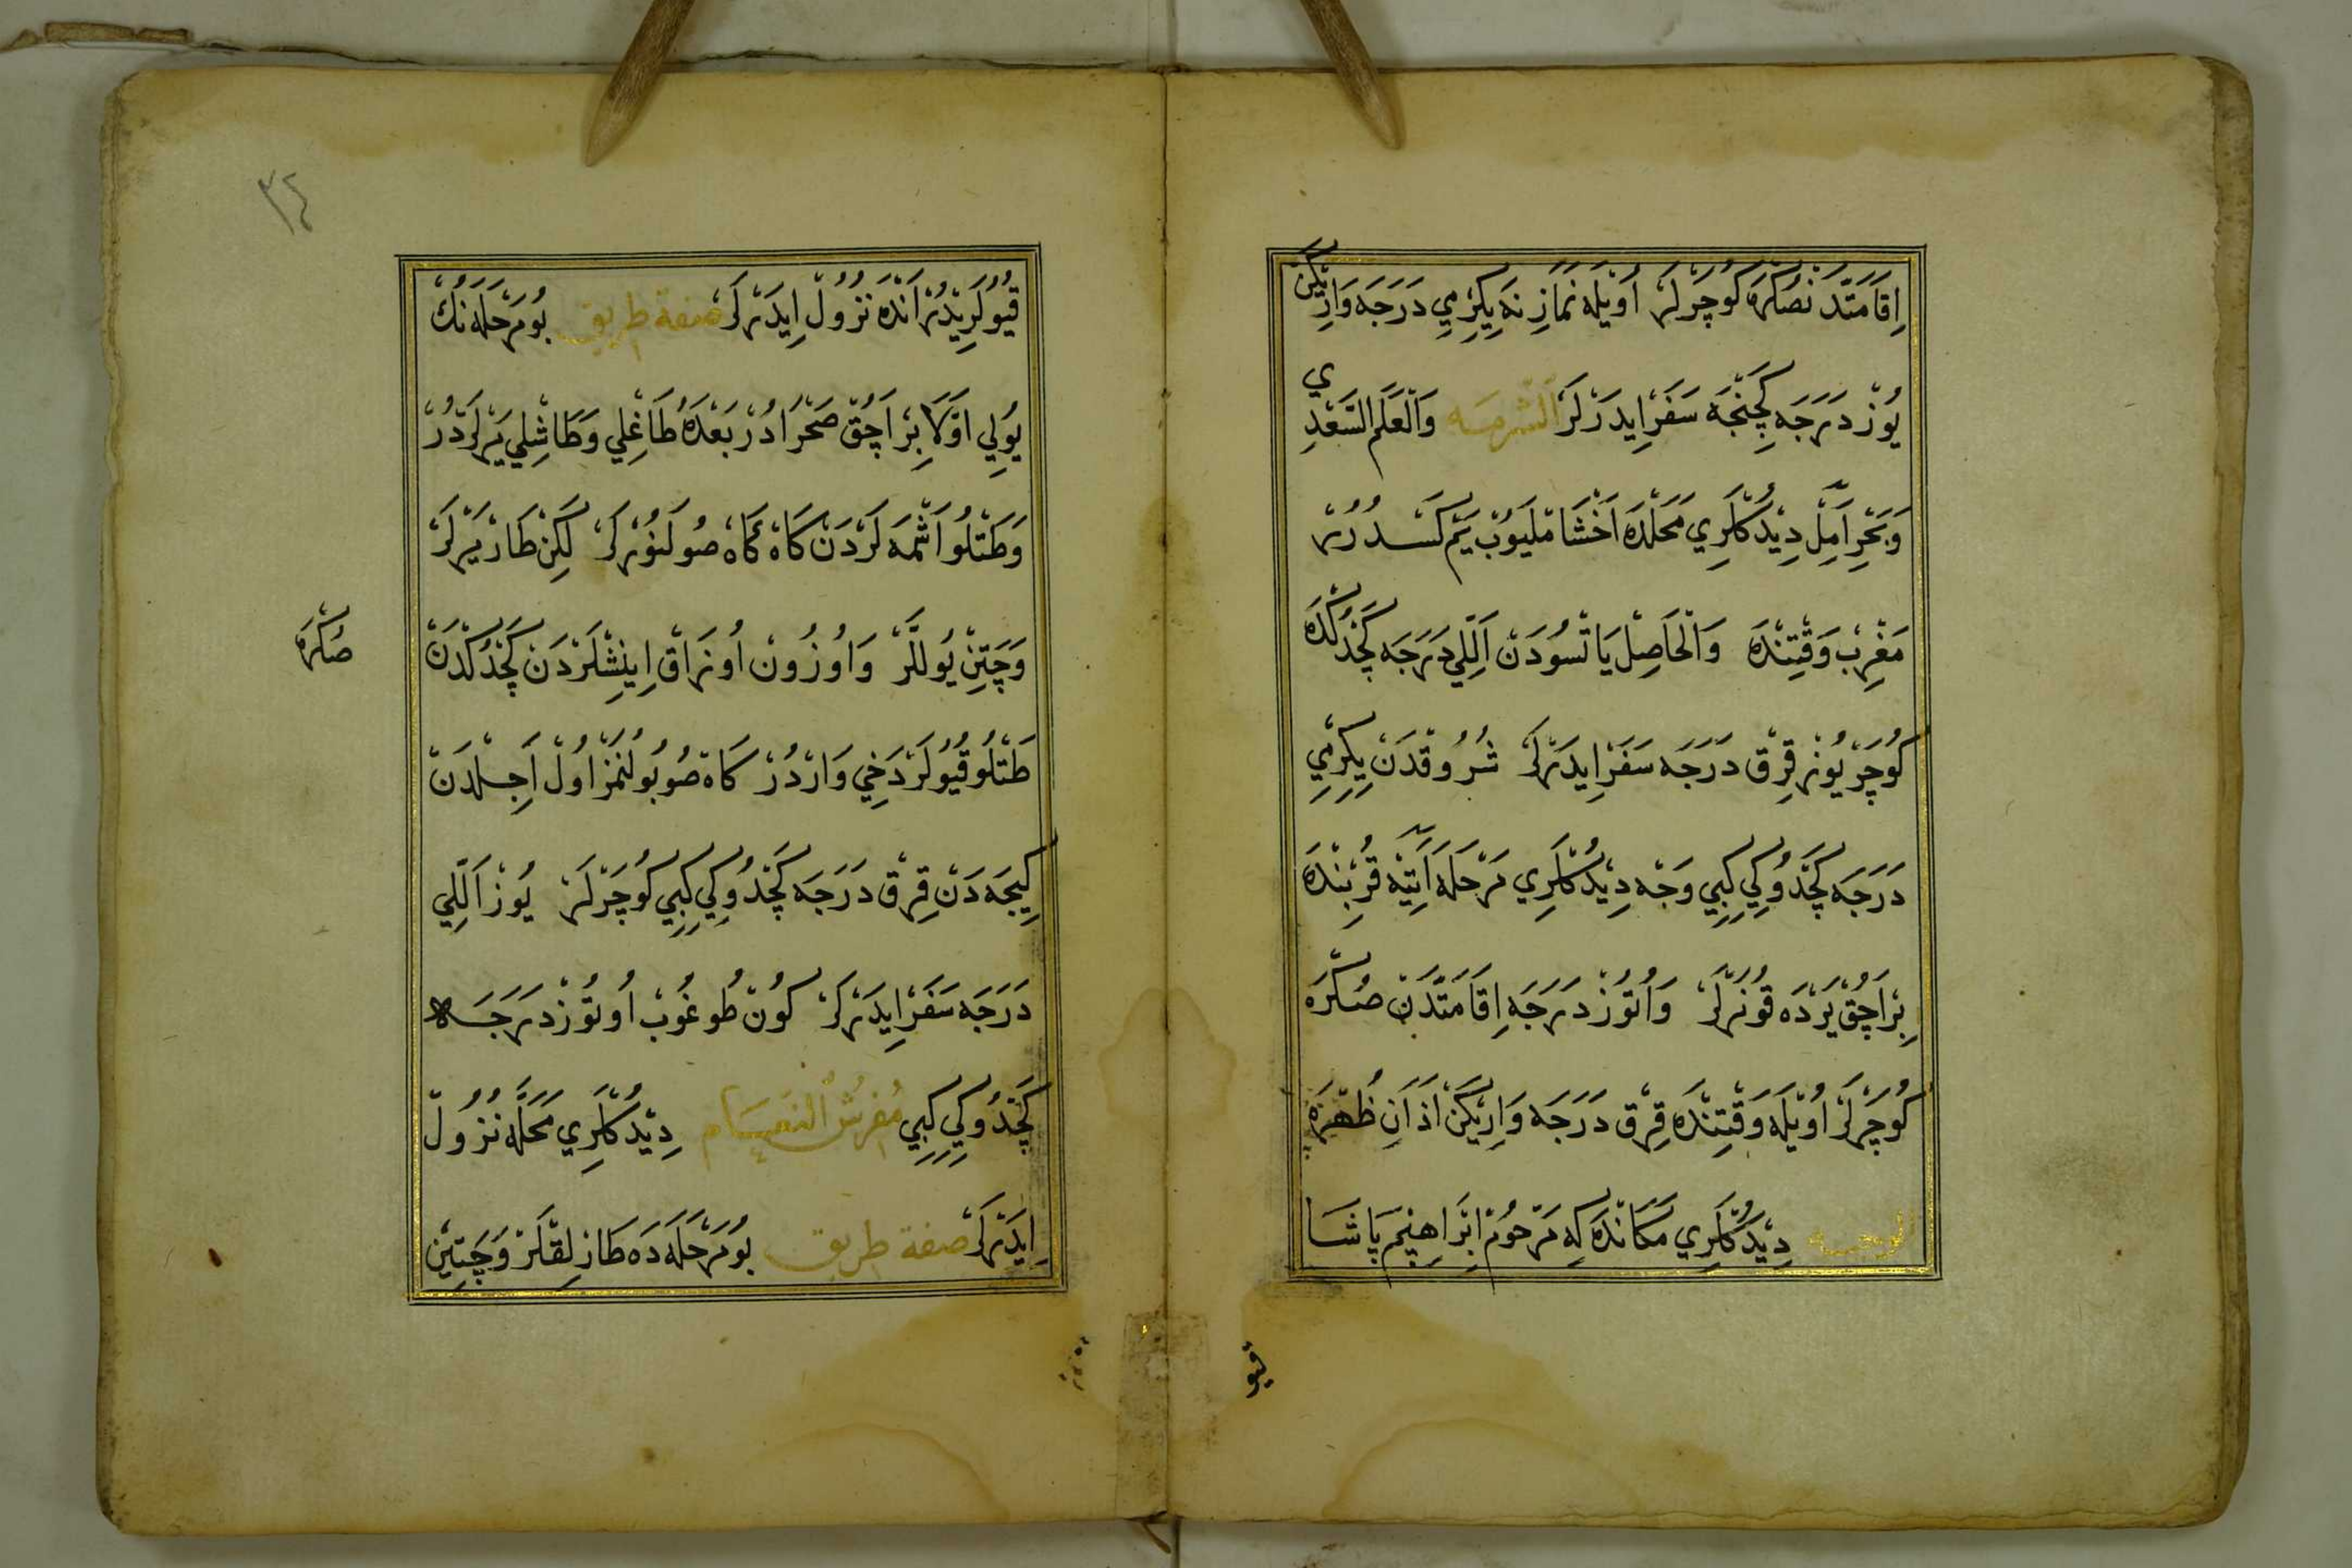 اِقَامَتَدَنْصُكْرَه كُوچَرْلَرْ اُويْلَه نَمَازِنَه يِكِرْمِي دَرَجَه وَارِيكَنْ
يُوزْ دَرَجَه كِجِنْجَه سَفَرْ ايدَرْلَرْ اَلشَّرْمَه وَالْعَلَمِ السَّعْدِي
وَبَحْرِ اَمِلْ دِيْدُكْلَرِي مَحَلْدَه اَخْشَامْلَيُوبْ يَمْ كَسْدُرُرْ
مَغْرِبْ وَقْتِنْدَه وَالْحَاصِلْ يَاتْسُودَنْ اَللِّي دَرَجَه كَچْدُكْدَه
كُوچَرْ يُوزْ قِرْقْ دَرَجَه سَفَرْ اِيدَرْلَرْ شُرُوقْدَنْ يِكِرْمِي
دَرَجَه كَچْدُوكِي كِبِي وَجْه دِيْدُكْلَرِي مَرْحَلَه اَتِيَه قُرْبِنْدَه
بِرْ اَچُقْ يَرْدَه قُونَرْلَرْ وَاُتُوزْ دَرَجَه اِقَامَتْدَنْ صُكْرَه
كُوچَرْلَرْ اُويْلَه وَقْتِنْدَه قِرْقْ دَرَجَه وَارِيكَنْ اَذَانِ ظُهْرَه
الوجه دِيْدُكْلَرِي مَكَانْدَه كِه مَرْحُومْ اِبْرَاهِيمْ پَاشَا
قيو
٣٤
قُيُولَرِيدُرْ اَنْدَه نُزُولْ اِيدَرْلَرْ صفة طريق بُو مَرْحَلَه نُكْ
يُولِي اَوَّلَا بِرْ اَچُقْ صَحْرَادُرْ بَعْدَه طَاغْلِي وَطَاشْلِي يَرْلَرْدُرْ
وَطَتْلُو اَشْمَه لَرْدَنْ كَاه كَاه صُو لَنُورْلَرْ لَكِنْ طَارْ يَرْلَرْ
وَچَتِنْ يُوللَّرْ وَاُوزُونْ اُوزَاقْ اِينِشْلَرْدَنْ كَچْدُكْدَنْ
صُكْرَه
طَتْلُو قُيُولَرْ دَخِي وَارْدُرْ كَاه صُو بُولُنْمَزْ اُولْ اَجِلْدَنْ
كِيجَه دَنْ قِرْقْ دَرَجَه كَچْدُوكِي كِبِي كُوچَرْلَرْ يُوزْ اَللِّي
دَرَجَه سَفَرْ اِيدَرْلَرْ كُونْ طُوغُوبْ اُوتُوزْ دَرَجَه
كَچْدُوكِي كِبِي مَفْرَشُ النَّعَام دِيْدُكْلَرِي مَحَلَّه نُزُولْ
اِيدَرْلَرْ صفة طريق بُو مَرْحَلَه دَه طَازْلِقْلَرْ وَچَتِينْ